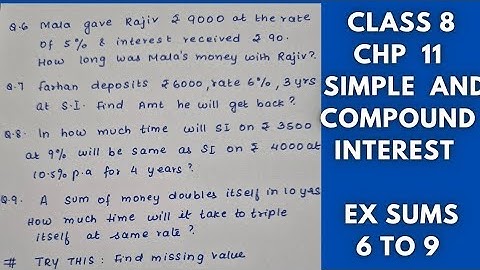 Q.6 Mala gave Rajiv ₹ 9000 at the rate
of 5% & interest received ₹ 90.
How long was Mala's money with Rajiv?
Q.7 Farhan deposits ₹6000, rate 6%, 3 yrs
at S.I. Find Amt he will get back?
Q.8. In how much time will SI on ₹ 3500
at 9% will be same as SI on ₹ 4000 at
10.5% p.a for 4 years?
Q.9. A sum of money doubles itself in 10 yrs
How much time will it take to triple
itself at same rate?
# TRY THIS: Find missing value
CLASS 8
CHP 11
SIMPLE AND
COMPOUND
INTEREST
EX SUMS
6 TO 9